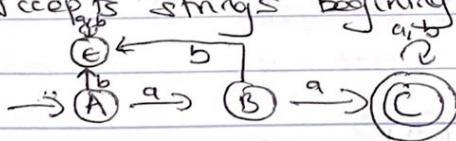 accepts strings beginning
a,b
a,b
E
b
b
A
a
B
a
C